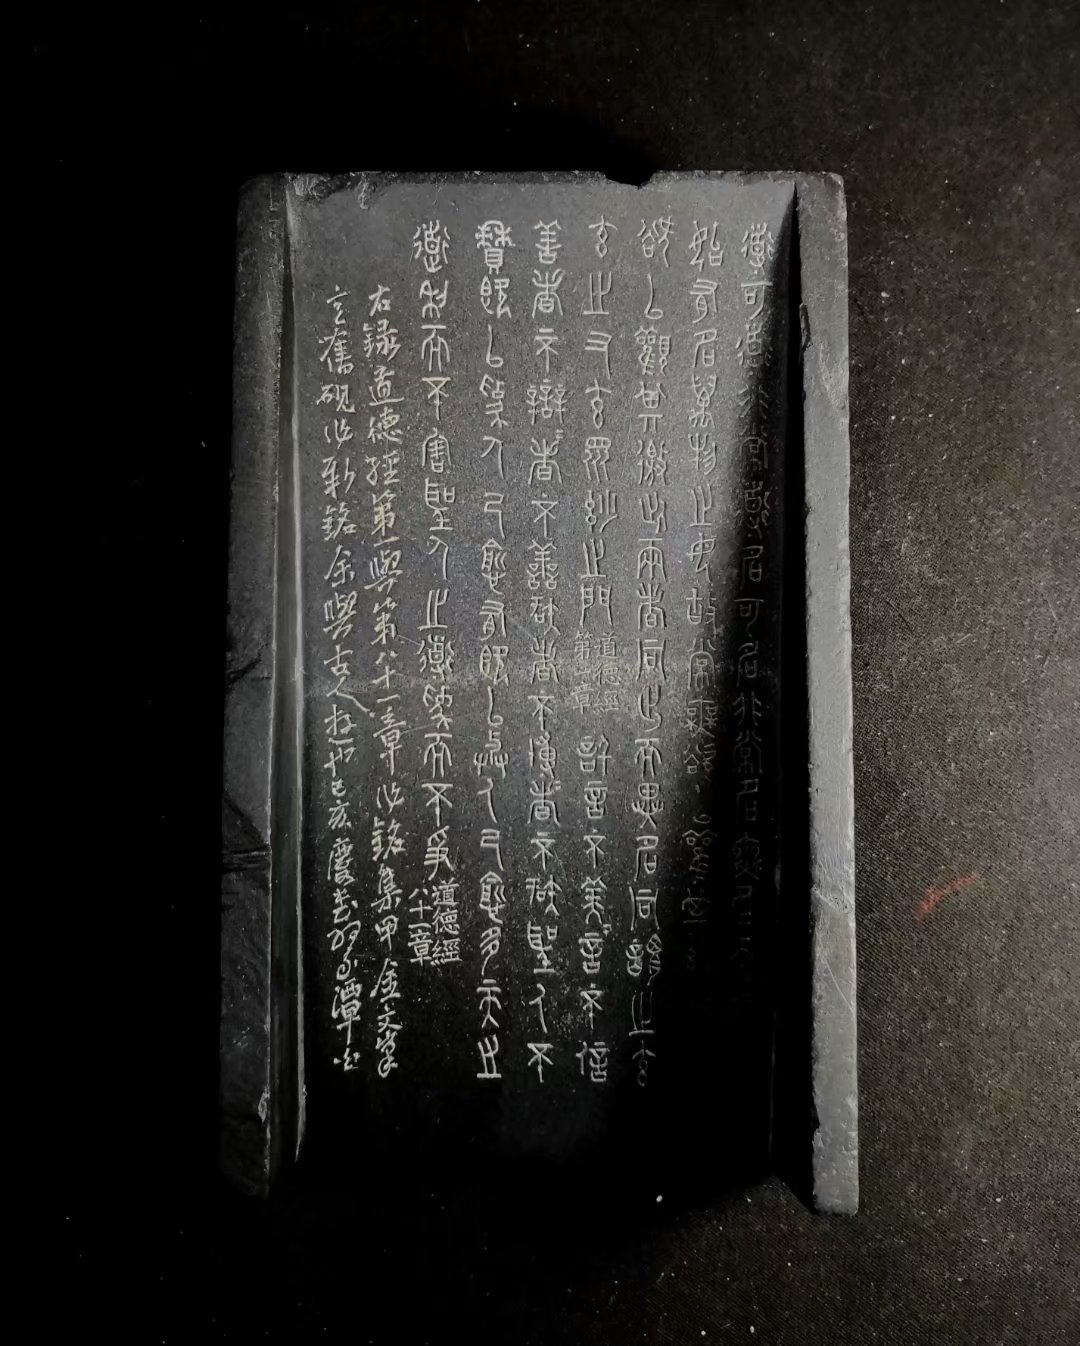 道可道非常道名可名非常名無名天
始有名萬物之母故常無欲以觀其
欲以觀其徼此兩者同出而異名同謂之玄
玄之又玄眾妙之門 道德經第一章 信言不美美言不信
善者不辯辯者不善知者不博博者不知聖人不
積既以為人己愈有既以與人己愈多天之
道利而不害聖人之道為而不爭 道德經八十一章
右錄道德經第一與第八十一章以銘集甲金文
舊硯以新銘余與古人也己亥潭